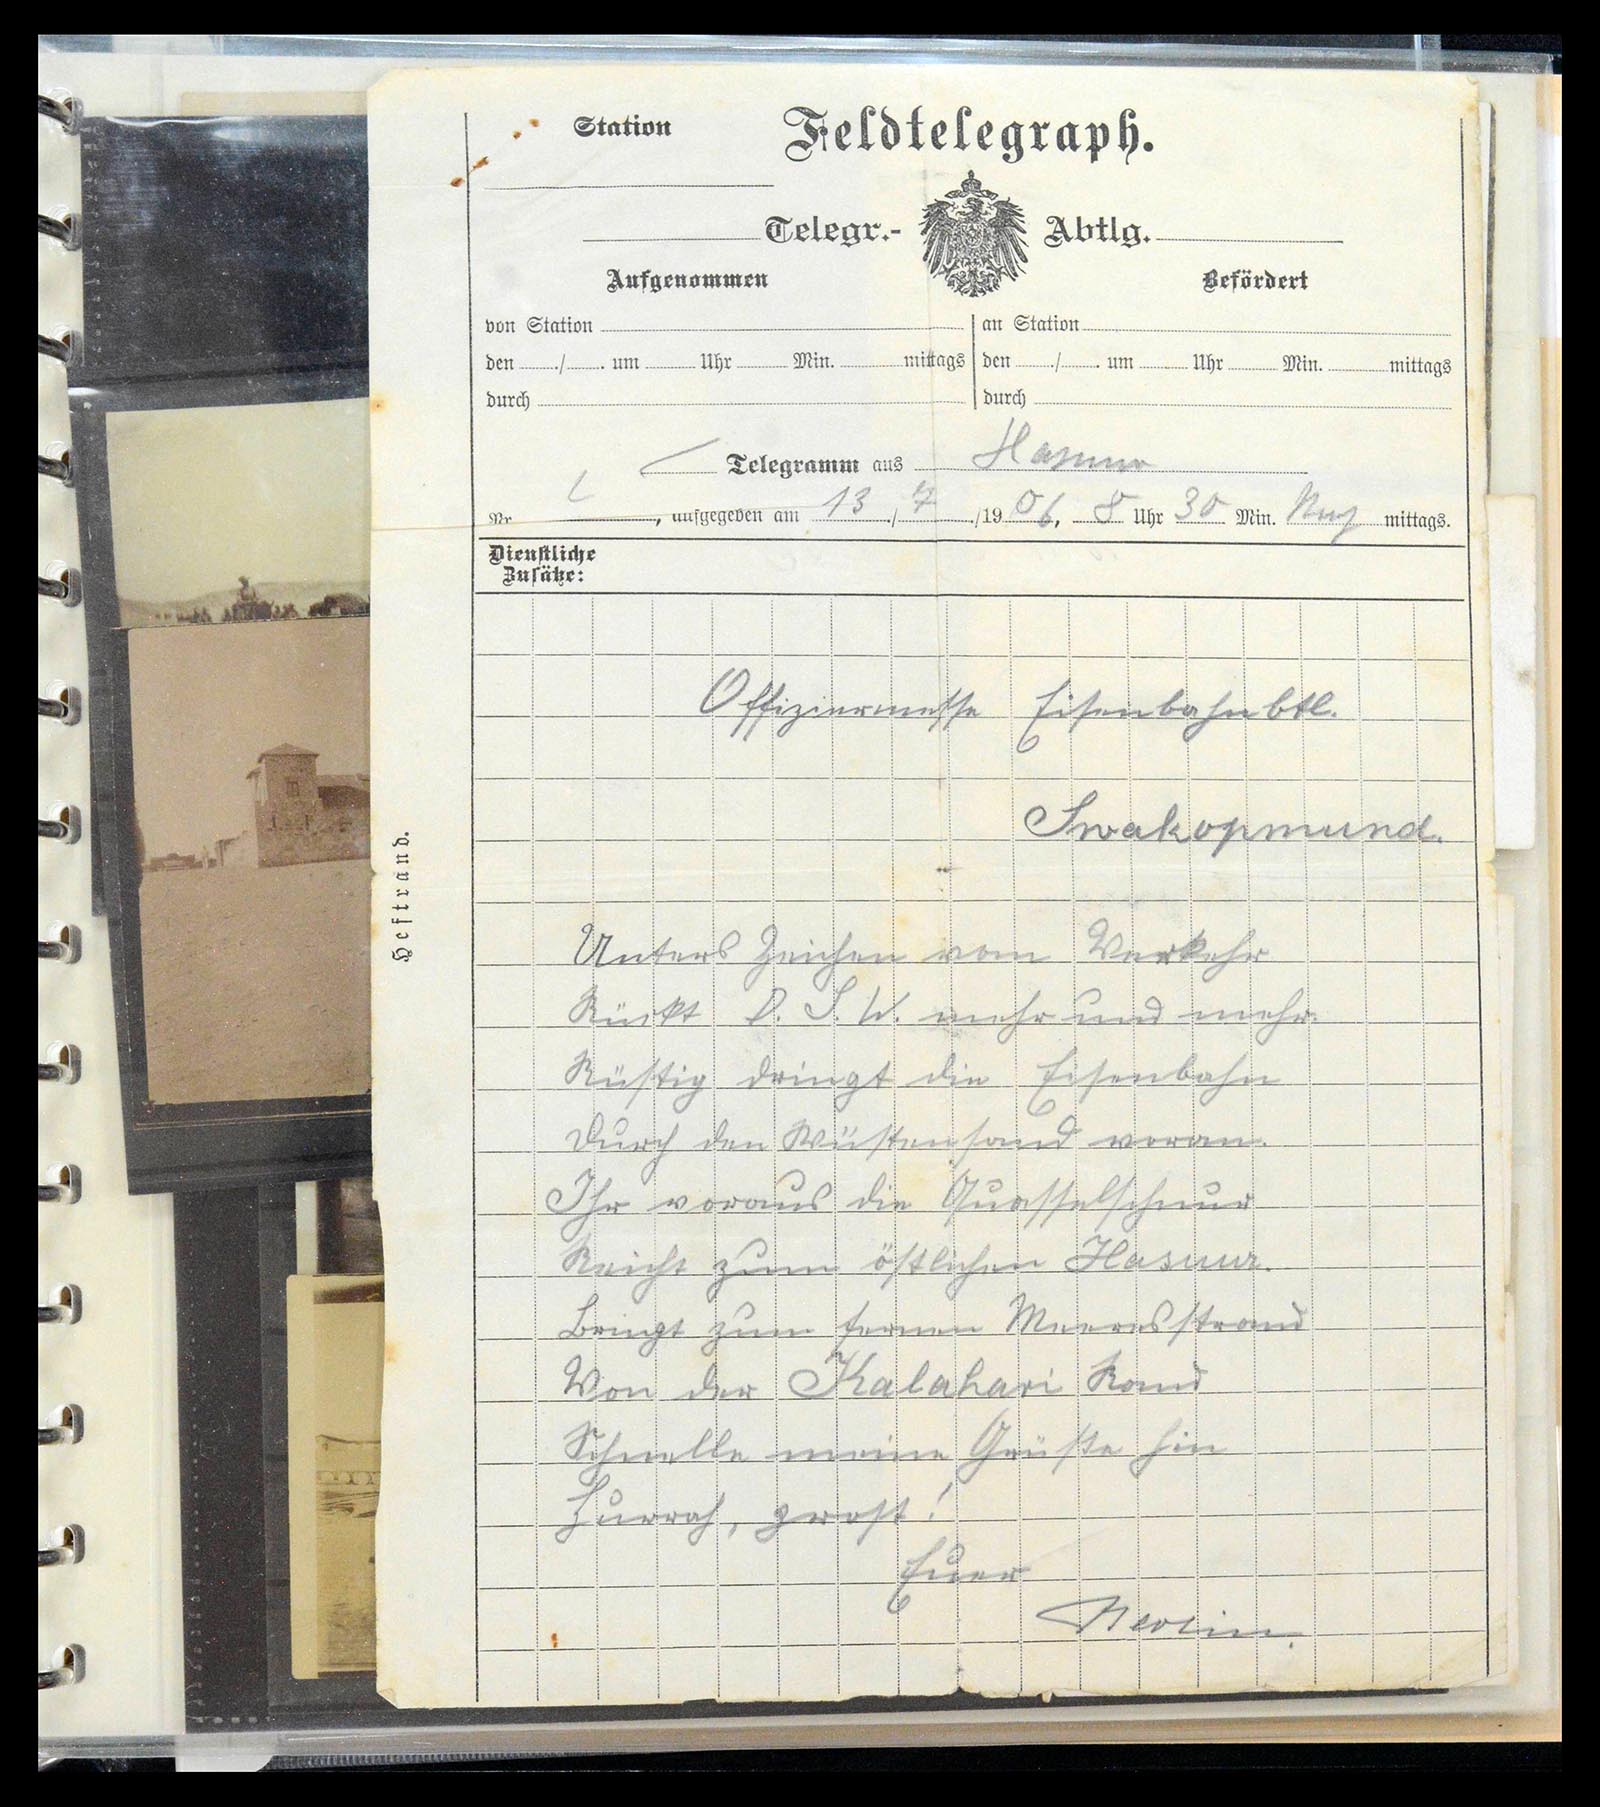 Station
Feldtelegraph.
Telegr.- Abtlg.
Aufgenommen
Befördert
von Station
an Station
den / . um Uhr Min. mittags
den / . um Uhr Min. mittags
durch
durch
Telegramm aus Hasuur
Nr. , aufgegeben am 13 / 7 /1906, 8 Uhr 30 Min. mittags.
Dienstliche
Zusätze:
Heftrand.
Offiziermesse Eisenbahnbtl.
Swakopmund.
Unters Zeichen vom Verkehr
Rückt D. S. W. mehr und mehr.
Rüstig dringt die Eisenbahn
Durch den Wüstensand voran.
Ihr voraus die Quasselschnur
Reicht zum östlichen Hasuur.
Bringt zum fernen Meeresstrand
Von der Kalahari Rand
Schnelle meine Grüße hin
Hurrah, prost!
Euer